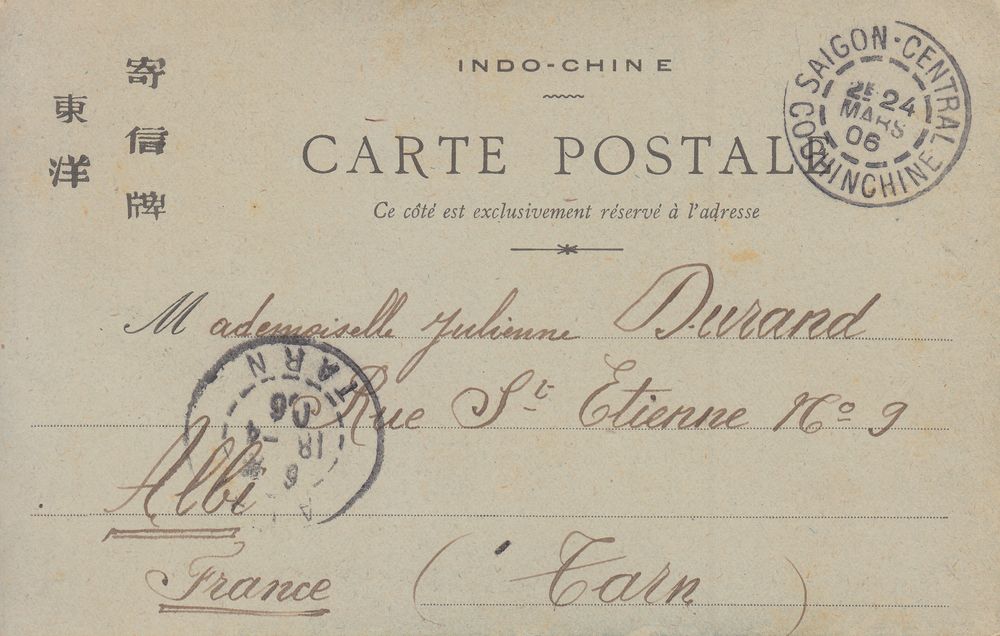 東洋
寄信牌
INDO-CHINE
CARTE POSTALE
Ce côté est exclusivement réservé à l'adresse
SAIGON-CENTRAL
2E 24
MARS
06
COCHINCHINE
Mademoiselle Julienne Durand
Rue St Etienne No 9
Albi
France (Tarn)
TARN
06
18 -4
6
A